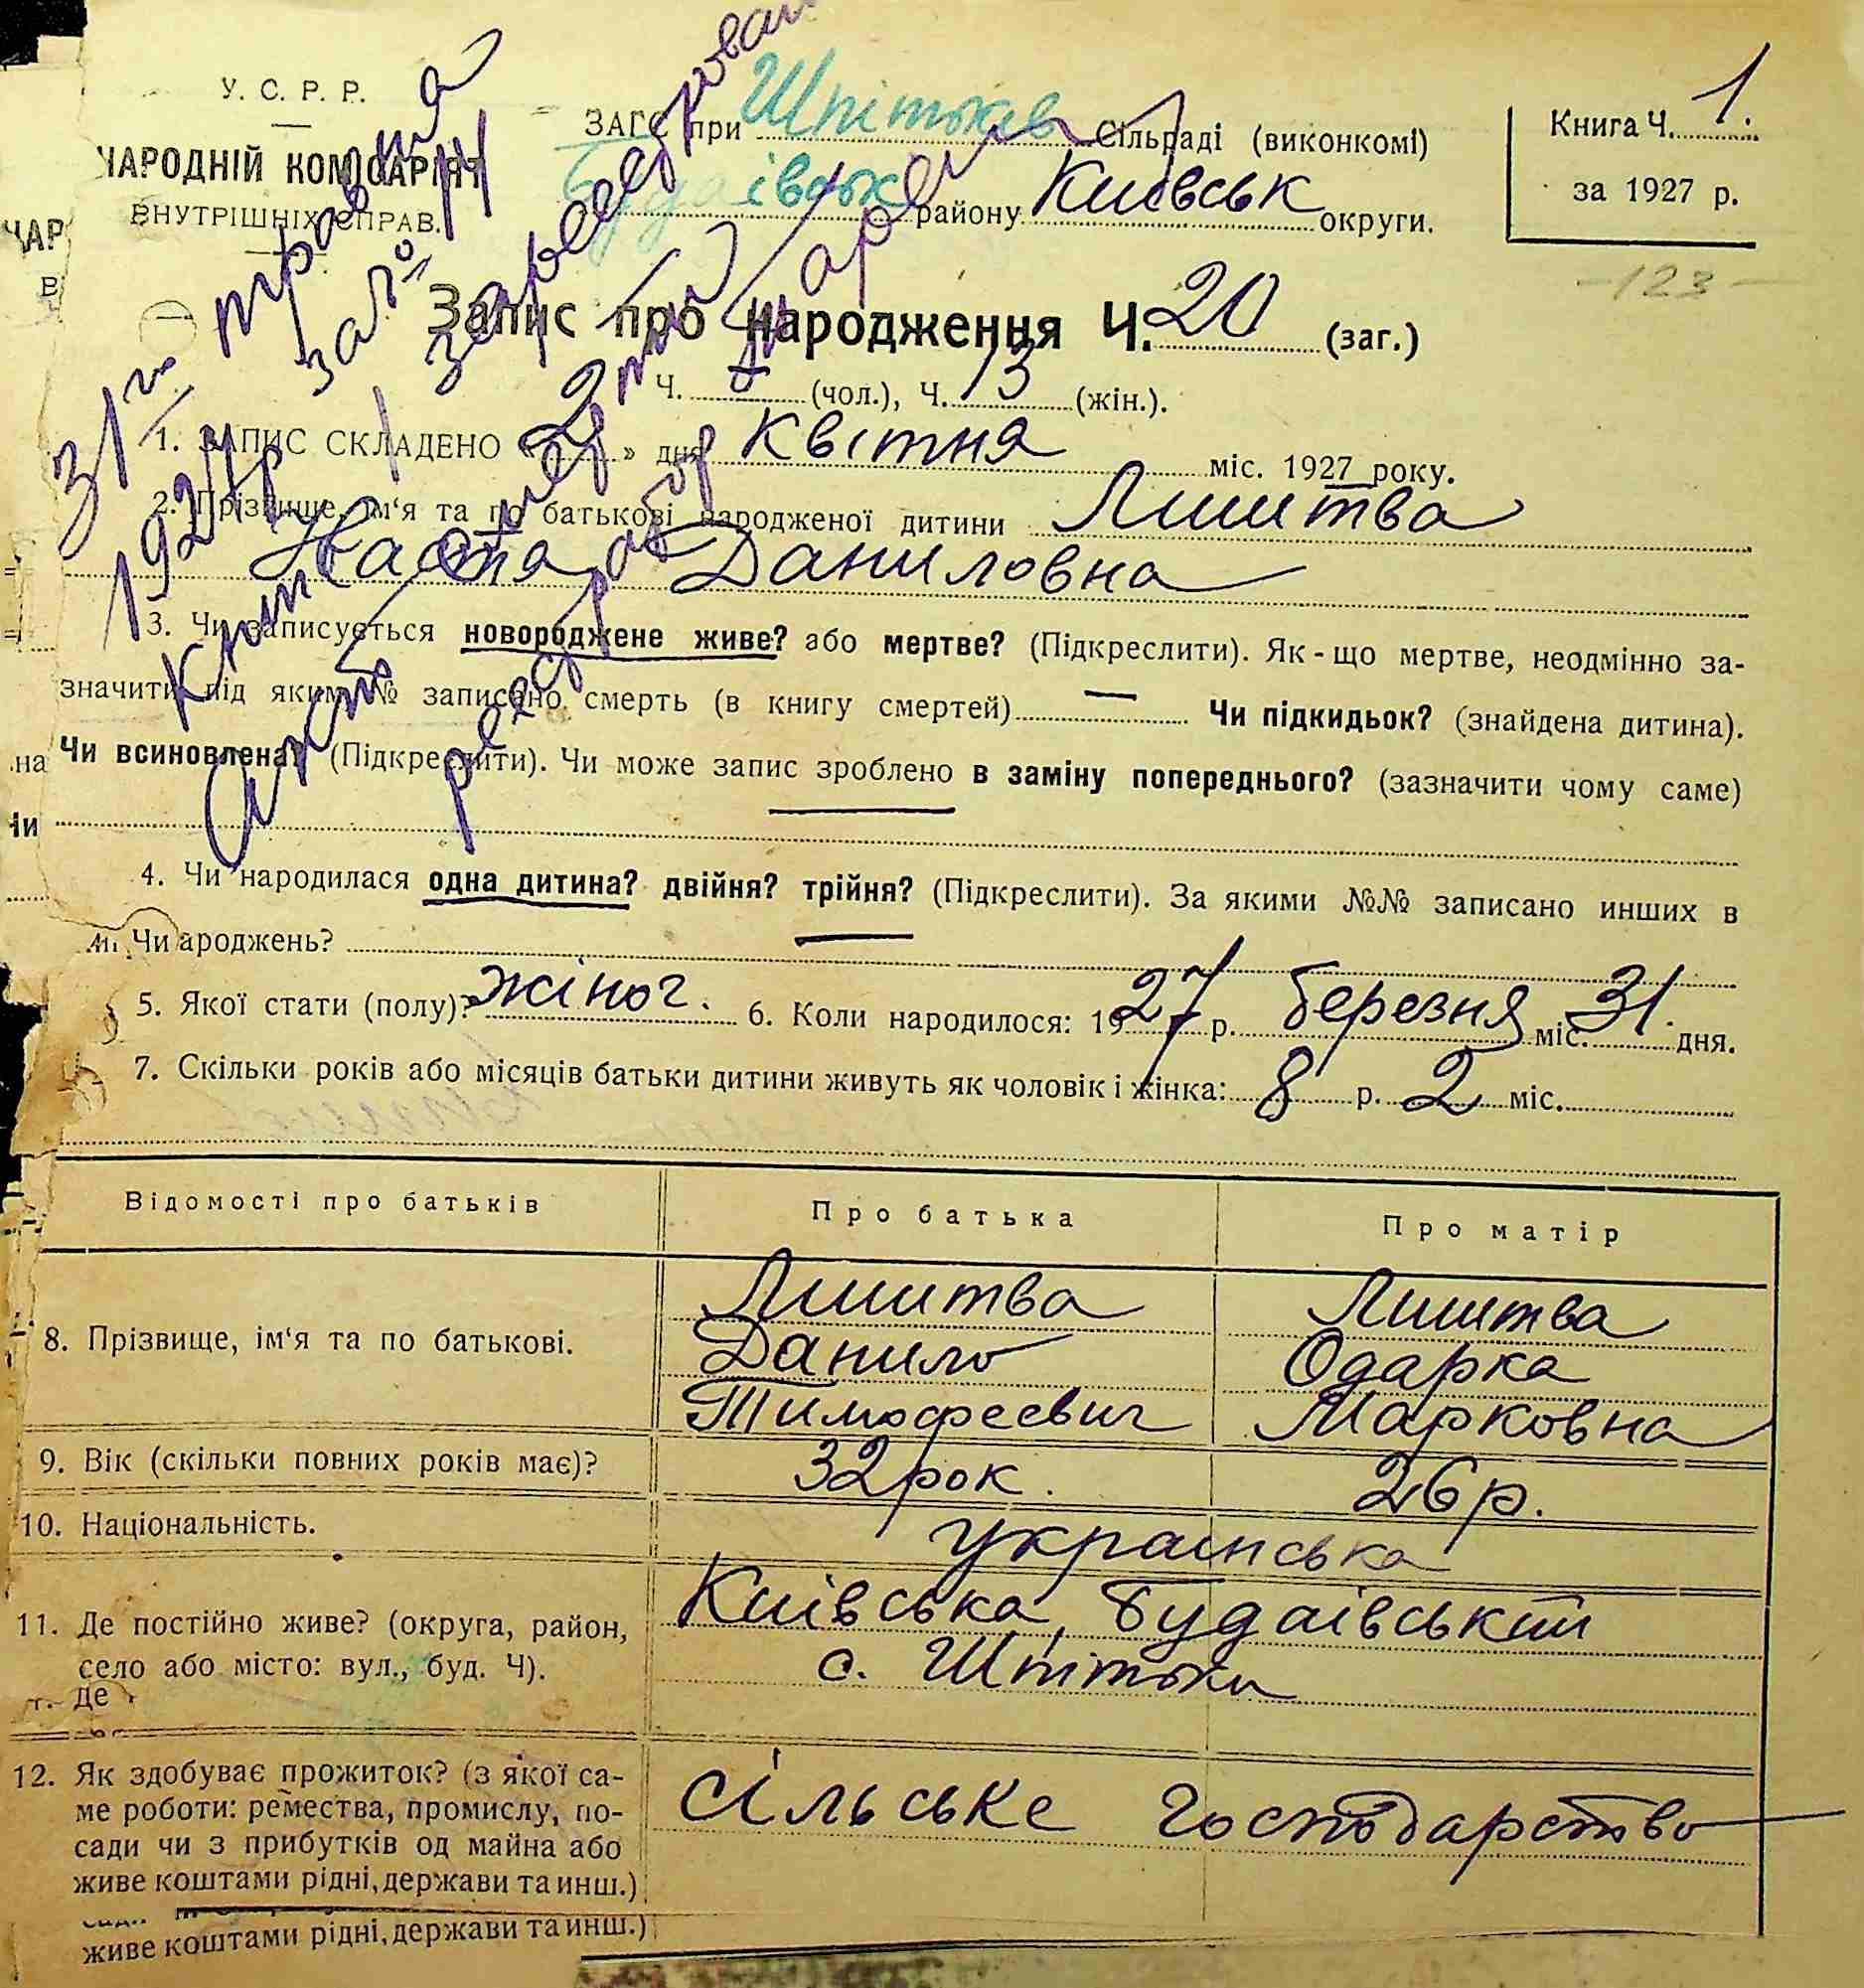 У. С. Р. Р.
НАРОДНІЙ КОМІСАРІЯТ
ВНУТРІШНІХ СПРАВ.
ЗАГС при Шпітьків Сільраді (виконкомі)
Будаівськ району Київськ округи.
Книга Ч. 1.
за 1927 р.
-123-
Запис про народження Ч. 20 (заг.)
Ч. (чол.), Ч. 13 (жін.).
1. ЗАПИС СКЛАДЕНО «2» дня квітня міс. 1927 року.
2. Прізвище, ім'я та по батькові народженої дитини Лиштва
Настя Даниловна
3. Чи записується новороджене живе? або мертве? (Підкреслити). Як-що мертве, неодмінно за-
значити під яким № записано смерть (в книгу смертей) — Чи підкидьок? (знайдена дитина).
Чи всиновлена? (Підкреслити). Чи може запис зроблено в заміну попереднього? (зазначити чому саме)
4. Чи народилася одна дитина? двійня? трійня? (Підкреслити). За якими №№ записано инших в
ароджень?
5. Якої стати (полу)? жіноч. 6. Коли народилося: 1927 р. березня міс. 31 дня.
7. Скільки років або місяців батьки дитини живуть як чоловік і жінка: 8 р. 2 міс.
Відомості про батьків Про батька Про матір
8. Прізвище, ім'я та по батькові.
Лиштва Лиштва
Данило Одарка
Тимофеевич Марковна
9. Вік (скільки повних років має)? 32 рок. 26 р.
10. Національність. українська
11. Де постійно живе? (округа, район,
село або місто: вул., буд. Ч).
Київська, Будаівський
с. Шпітьки
12. Як здобуває прожиток? (з якої са-
ме роботи: ремества, промислу, по-
сади чи з прибутків од майна або
живе коштами рідні, держави та инш.)
сільське господарство
живе коштами рідні, держави та инш.)
31го травня
1927 р
зал № 14